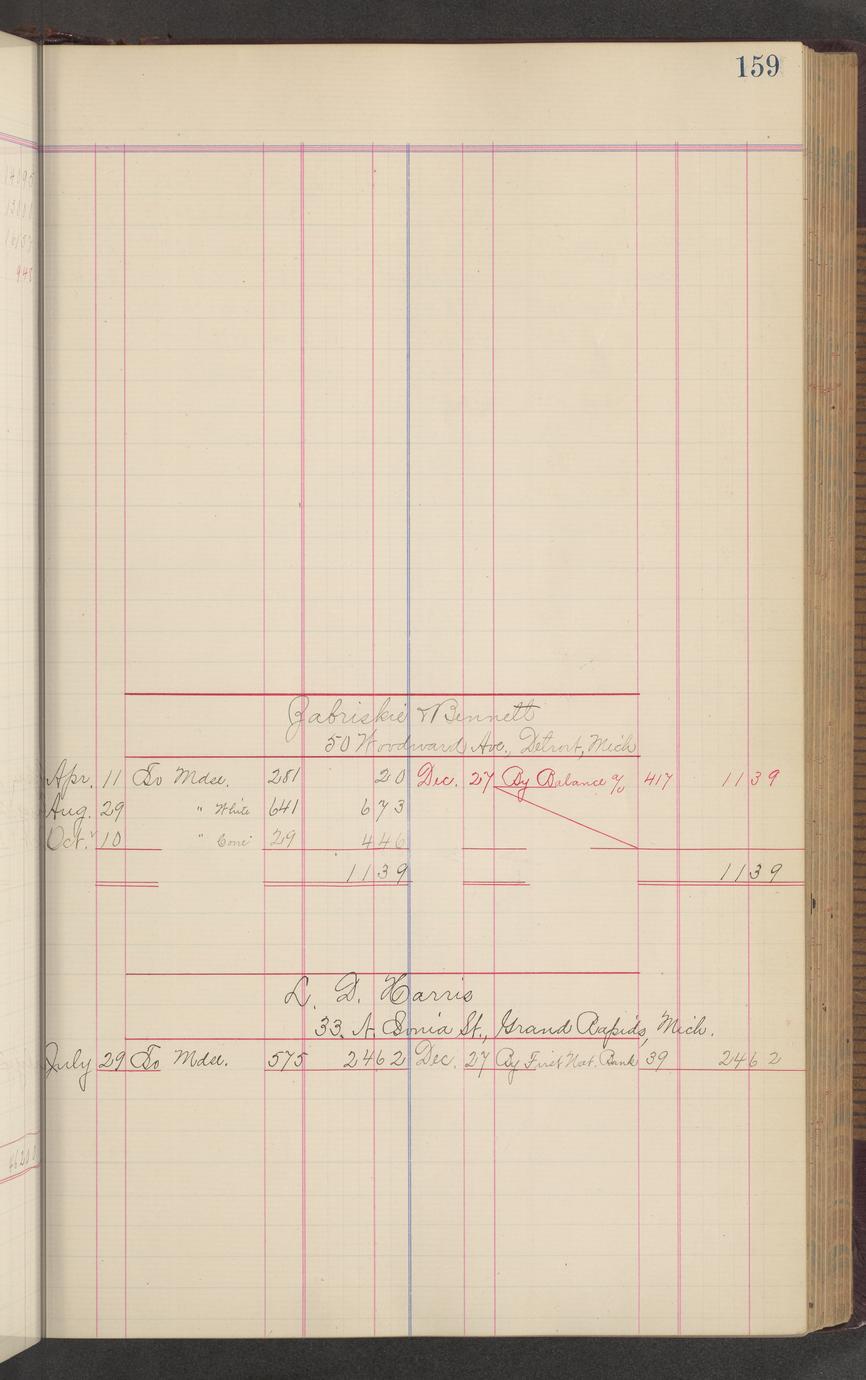 159
Zabriskie & Bennett
50 Woodward Ave., Detroit, Mich
Apr. 11 To Mdse. 281 20 Dec. 27 By Balance % 417 1139
Aug. 29 " White 641 673
Oct. 10 " 29 446
1139 1139
L. D. Harris
33. N. Ionia St., Grand Rapids, Mich.
July 29 To Mdse. 575 2462 Dec. 27 By First Nat. Bank 39 2462